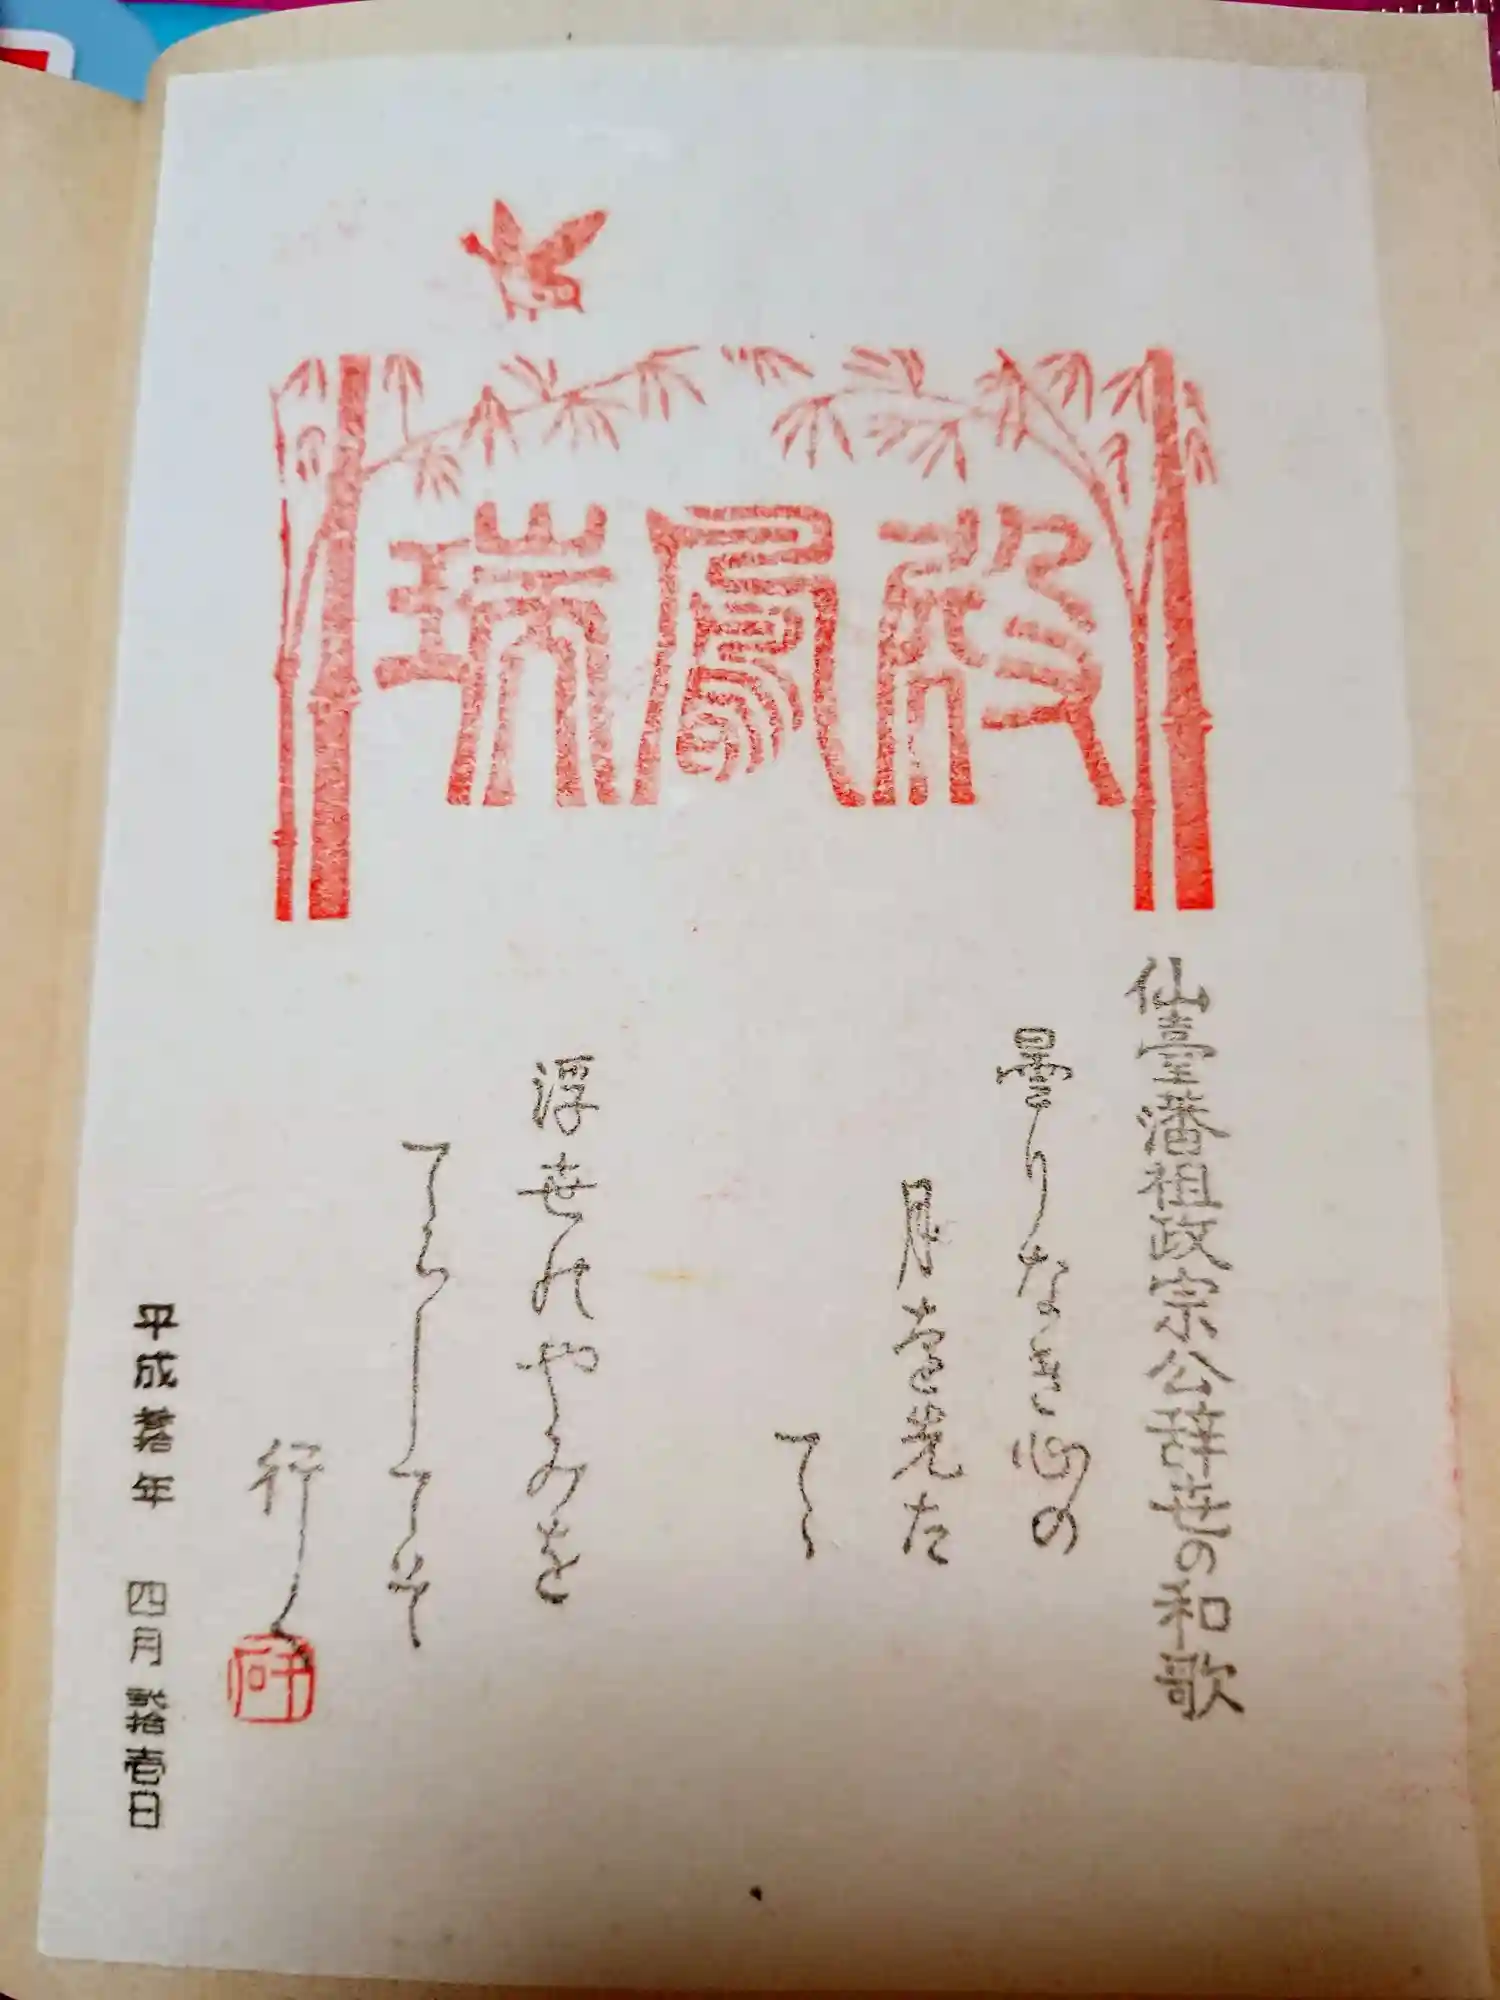 瑞鳳殿
仙臺藩祖政宗公辞世の和歌
曇りなき心の
月を先た
てゝ
浮世のやみを
てらしてそ
行く
平成拾年 四月貳拾壱日